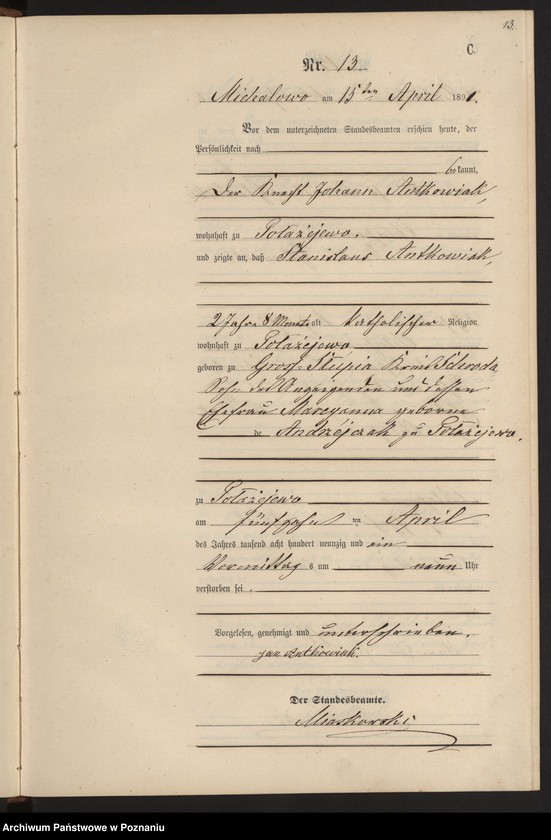 13.
C.
Nr. 13
Michalowo am 15ten April 1891.
Vor dem unterzeichneten Standesbeamten erschien heute, der
Persönlichkeit nach
bekannt,
Der Knecht Johann Antkowiak,
wohnhaft zu Połażejewo.
und zeigte an, daß Stanislaus Antkowiak,
2 Jahr 8 Monate alt katholischer Religion
wohnhaft zu Połażejewo
geboren zu Gross Słupia Kreis Schroda
Sohn des Anzeigenden und dessen
Ehefrau Maryanna geborne
Andrzéjczak zu Połażejewo.
zu Połażejewo
am fünfzehnten April
des Jahres tausend acht hundert neunzig und ein
Vormittags um neun Uhr
verstorben sei.
Vorgelesen, genehmigt und unterschrieben.
jan antkowiak.
Der Standesbeamte.
Miaskowski
Archiwum Państwowe w Poznaniu